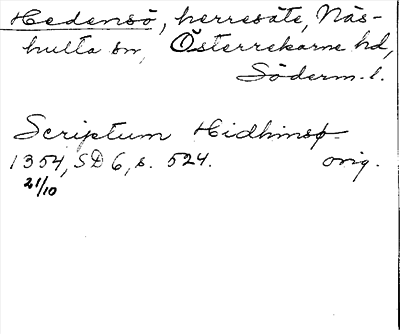 Hedensö, herresäte, Näs-
hulta sn, Österrekarne hd,
Söderm. l.
Scriptum Hidhinsø
1354, SD 6, s. 524. orig.
21/10